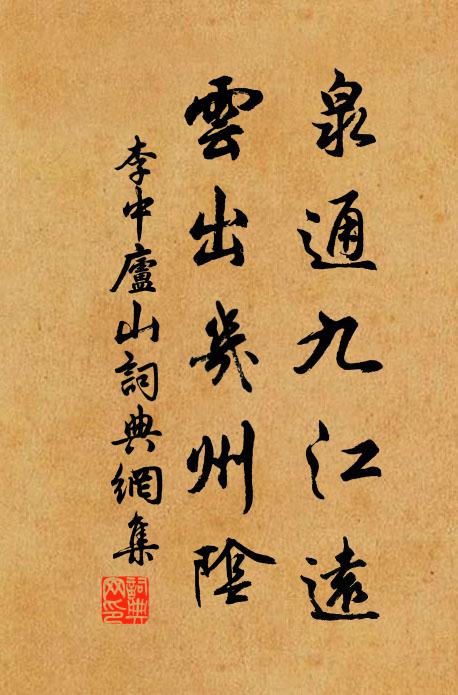 泉通九江遠
雲出幾州陰
李中廬山詞典網集
詞典網印